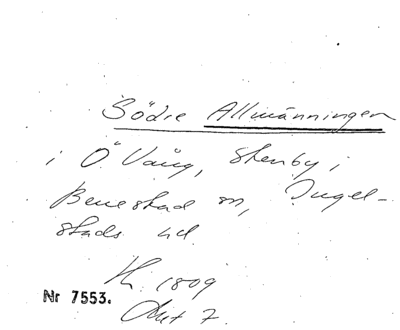 Södre Allmänningen
i Ö. Vång, Stenby i
Benestad sn, Ingel-
stads hd
1809
Nr 7553.
Akt 7.